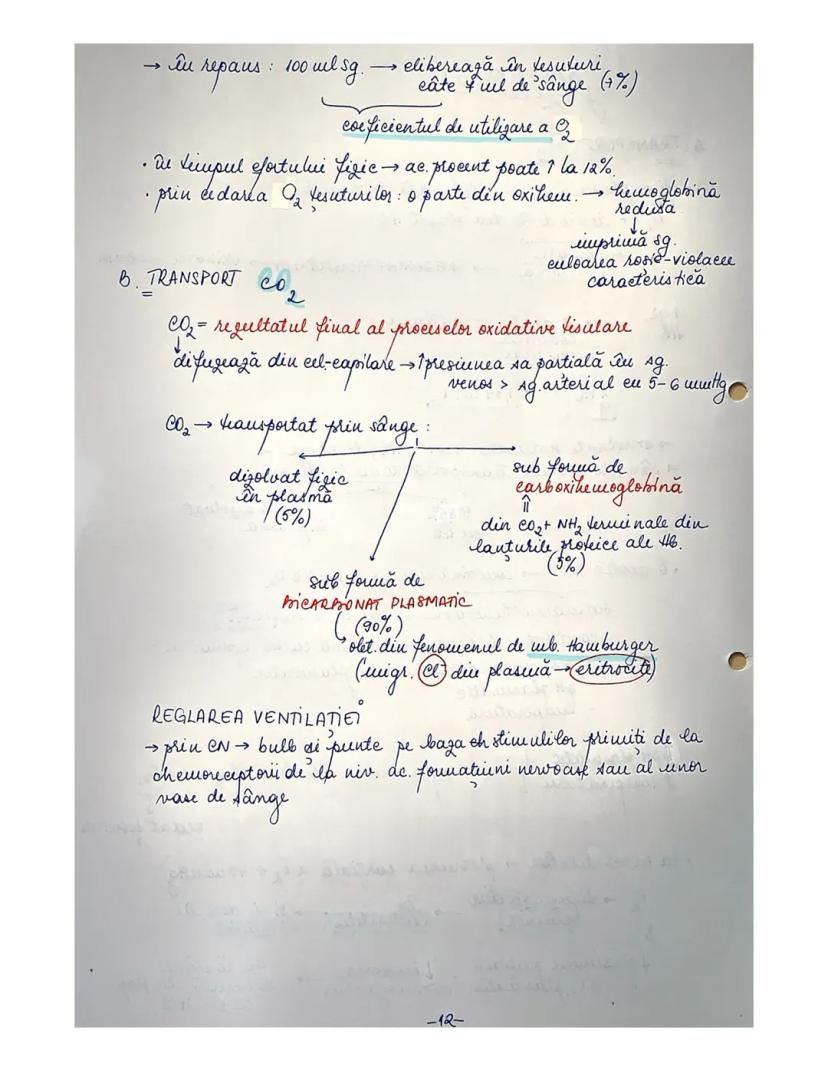 → în repaus : 100 ml sg. → eliberează în țesuturi
câte 7 ml de sânge (7%)
coeficientul de utilizare a O2
• În timpul efortului fizic → ac. procent poate ↑ la 12%.
• prin cedarea O2 țesuturilor : o parte din oxihem. → hemoglobină
redusă
↓
imprimă sg.
culoarea roșie-violacee
caracteristică
B. TRANSPORT CO2
CO2 = rezultatul final al proceselor oxidative tisulare
↓
difuzează din cel-capilare → ↑presiunea sa parțială în sg.
venos > sg. arterial cu 5-6 mmHg
CO2 → transportat prin sânge :
dizolvat fizic
în plasmă
(5%)
sub formă de
carboxihemoglobină
⇑
din CO2 + NH2 terminale din
lanțurile proteice ale Hb.
(5%)
sub formă de
BICARBONAT PLASMATIC
(90%)
obt. din fenomenul de mb. Hamburger
(migr. Cl⁻ din plasmă → eritrocite)
REGLAREA VENTILAȚIEI
→ prin CN → bulb și punte pe baza stimulilor primiți de la
chemoreceptorii de la niv. ac. formațiuni nervoase sau al unor
vase de sânge
-12-